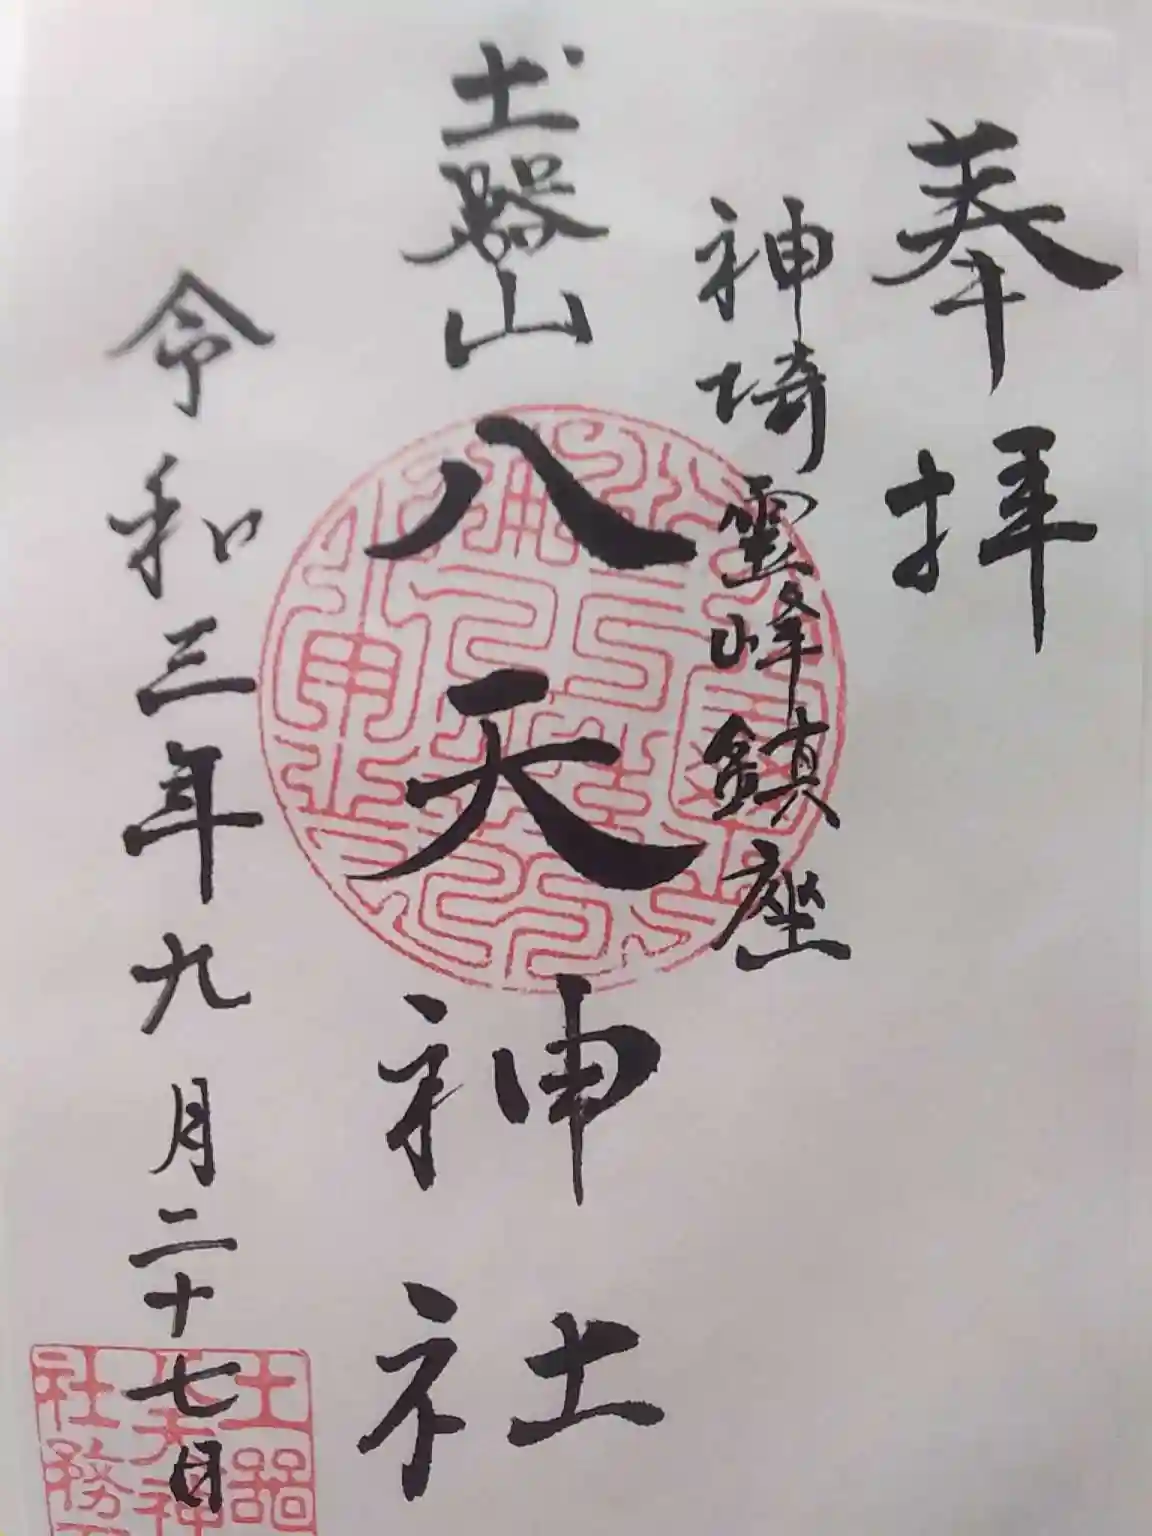 奉拝
神埼霊峰鎮座
土器山八天神社
令和三年九月二十七日
土器
八天神
社務